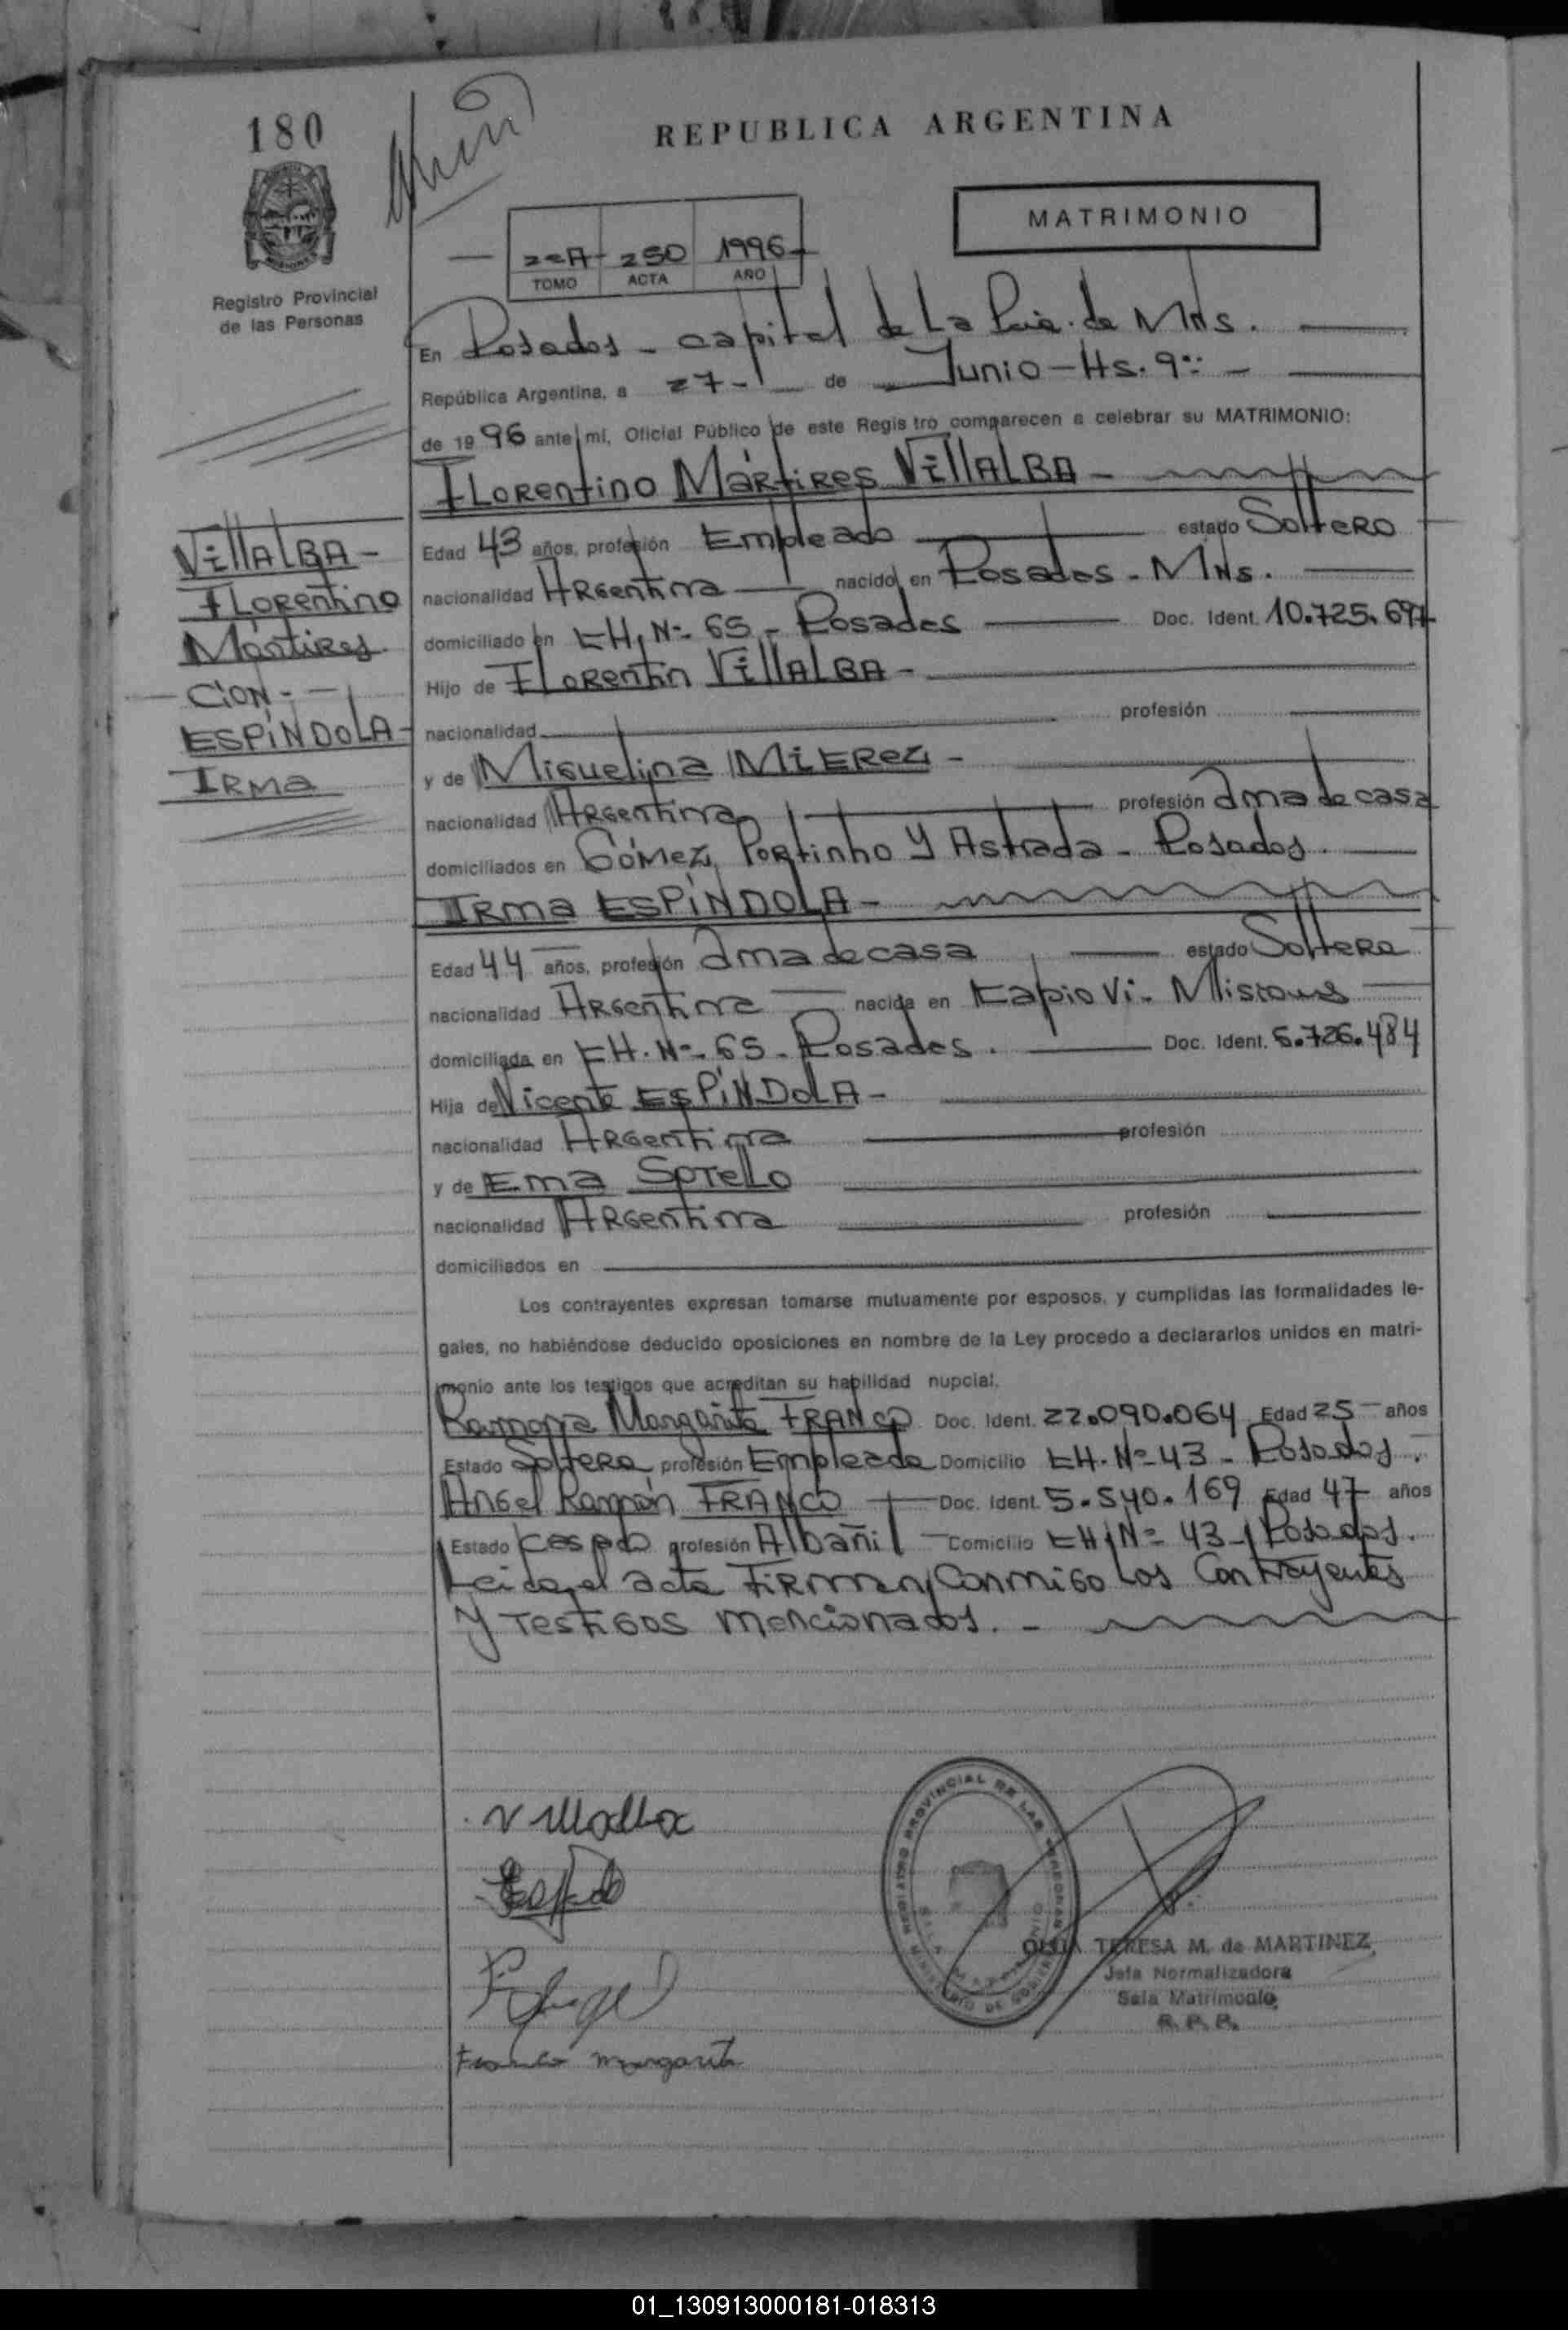 180
REPUBLICA ARGENTINA
MATRIMONIO
22A - 250 1996
TOMO ACTA AÑO
Registro Provincial
de las Personas
En Posadas - capital de La Pcia. de Mns.
República Argentina, a 27 - de Junio - Hs. 9:
de 1996 ante mi, Oficial Público de este Registro comparecen a celebrar su MATRIMONIO:
Florentino Mártires VillALBA -
Edad 43 años, profesión Empleado estado Soltero
nacionalidad Argentina nacido en Posadas - Mns.
domiciliado en CH. Nº 65 - Posadas Doc. Ident. 10.725.697
Hijo de Florentin VillALBA -
nacionalidad profesión
y de Miguelina MIEREZ -
nacionalidad Argentina profesión Ama de casa
domiciliados en Gómez Portinho y Astrada - Posadas.
VillALBA -
Florentino
Mártires
CION - -
ESPÍNDOLA -
IRMA
IRMA ESPÍNDOLA -
Edad 44 años, profesión Ama de casa estado Soltera
nacionalidad Argentina nacida en Capiovi - Misiones
domiciliada en CH. Nº 65 - Posadas. Doc. Ident. 6.726.484
Hija de Vicente ESPÍNDOLA -
nacionalidad Argentina profesión
y de Ema Sotelo
nacionalidad Argentina profesión
domiciliados en
Los contrayentes expresan tomarse mutuamente por esposos, y cumplidas las formalidades le-
gales, no habiéndose deducido oposiciones en nombre de la Ley procedo a declararlos unidos en matri-
monio ante los testigos que acreditan su habilidad nupcial.
Ramona Margarita FRANCO Doc. Ident. 22.090.064 Edad 25 años
Estado Soltera profesión Empleada Domicilio CH. Nº 43 - Posadas.
Angel Ramón FRANCO Doc. Ident. 5.540.169 Edad 47 años
Estado Casado profesión Albañil Domicilio CH. Nº 43 - Posadas.
Leida el acta Firman Conmigo Los Contrayentes
y Testigos mencionados. -
Villalba
REGISTRO PROVINCIAL DE LAS PERSONAS
MINISTERIO DE GOBIERNO
SALA MATRIMONIO
OLGA TERESA M. de MARTINEZ
Jefa Normalizadora
Sala Matrimonio
R. P. P.
Franco Margarita
01_130913000181-018313